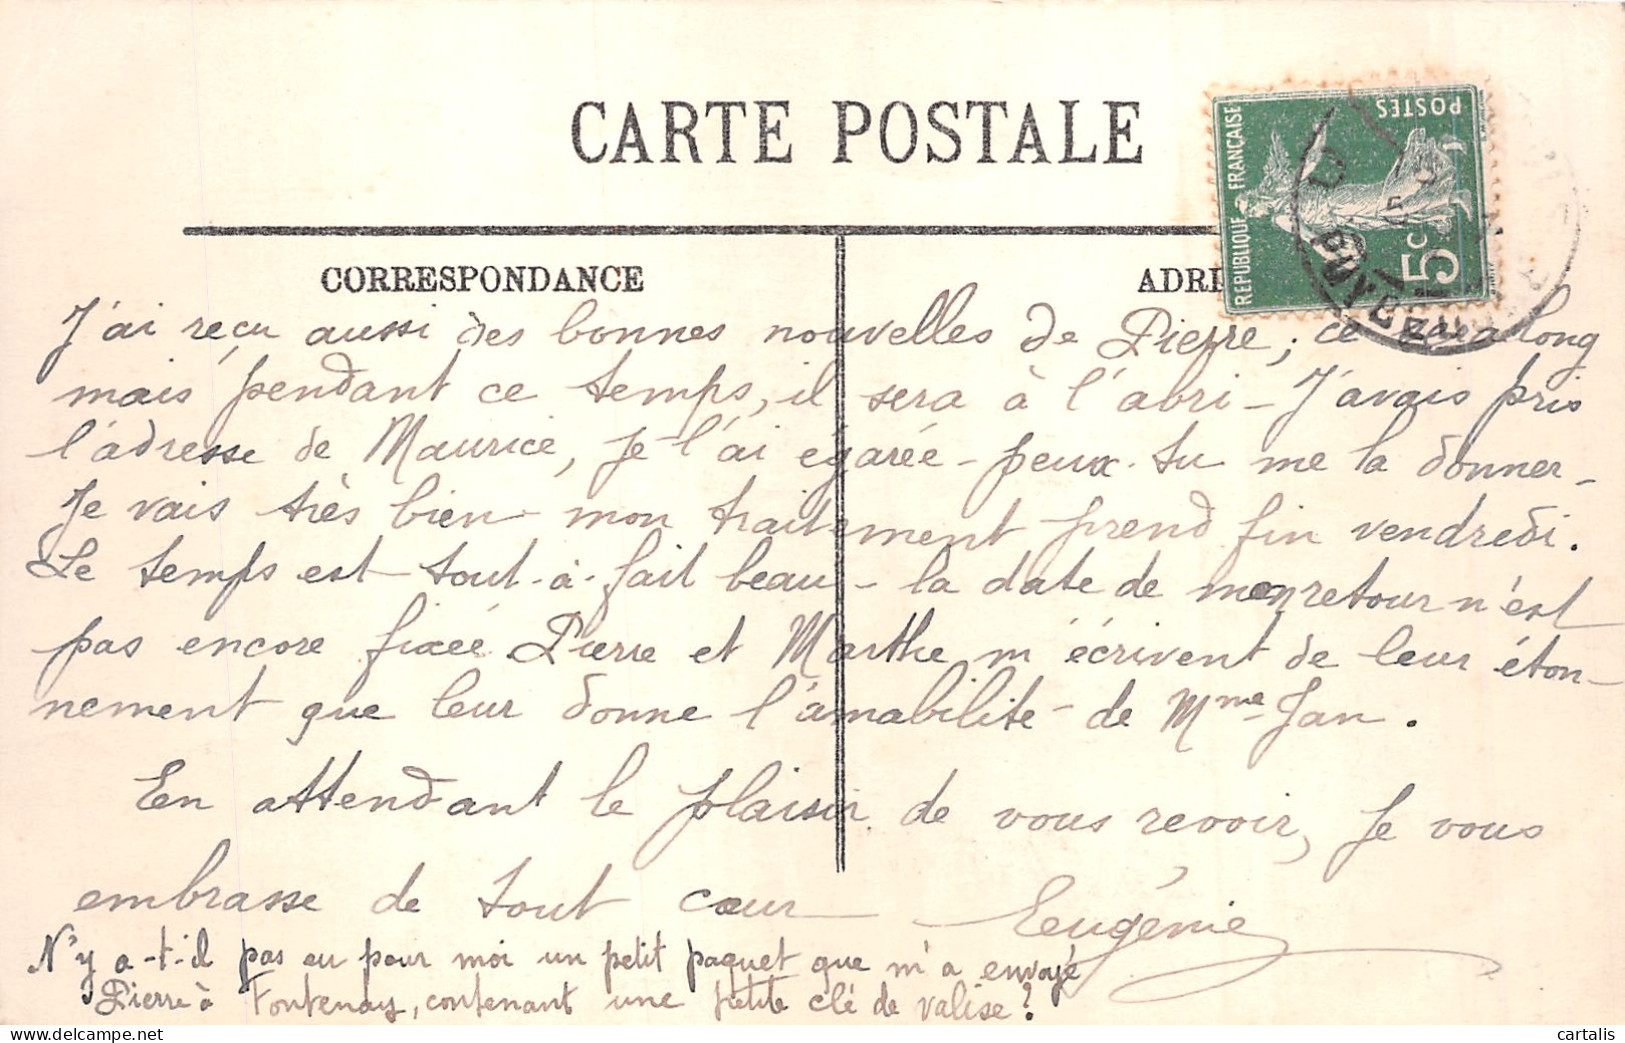 CARTE POSTALE
REPUBLIQUE FRANÇAISE
POSTES
5c
CORRESPONDANCE
ADR
J'ai reçu aussi des bonnes nouvelles de Pierre; ce sera long
mais pendant ce temps, il sera à l'abri - J'avais pris
l'adresse de Maurice, je l'ai égarée - peux-tu me la donner -
Je vais très bien - mon traitement prend fin vendredi.
Le temps est tout-à-fait beau - la date de mon retour n'est
pas encore fixée Pierre et Marthe m'écrivent de leur éton-
nement que leur donne l'amabilité de Mme Jan.
En attendant le plaisir de vous revoir, je vous
embrasse de tout cœur
Eugénie
N'y a-t-il pas eu pour moi un petit paquet que m'a envoyé
Pierre à Fontenay, contenant une petite clé de valise?
cartalis